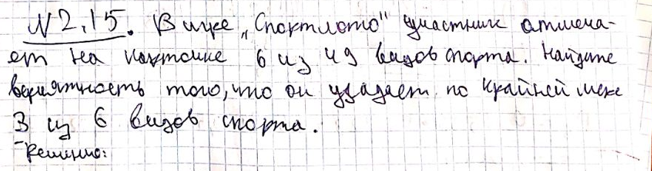 N 2.15. В игре „Спортлото" участник отмеча-
ет на карточке 6 из 49 видов спорта. Найдите
вероятность того, что он угадает по крайней мере
3 из 6 видов спорта.
Решение: